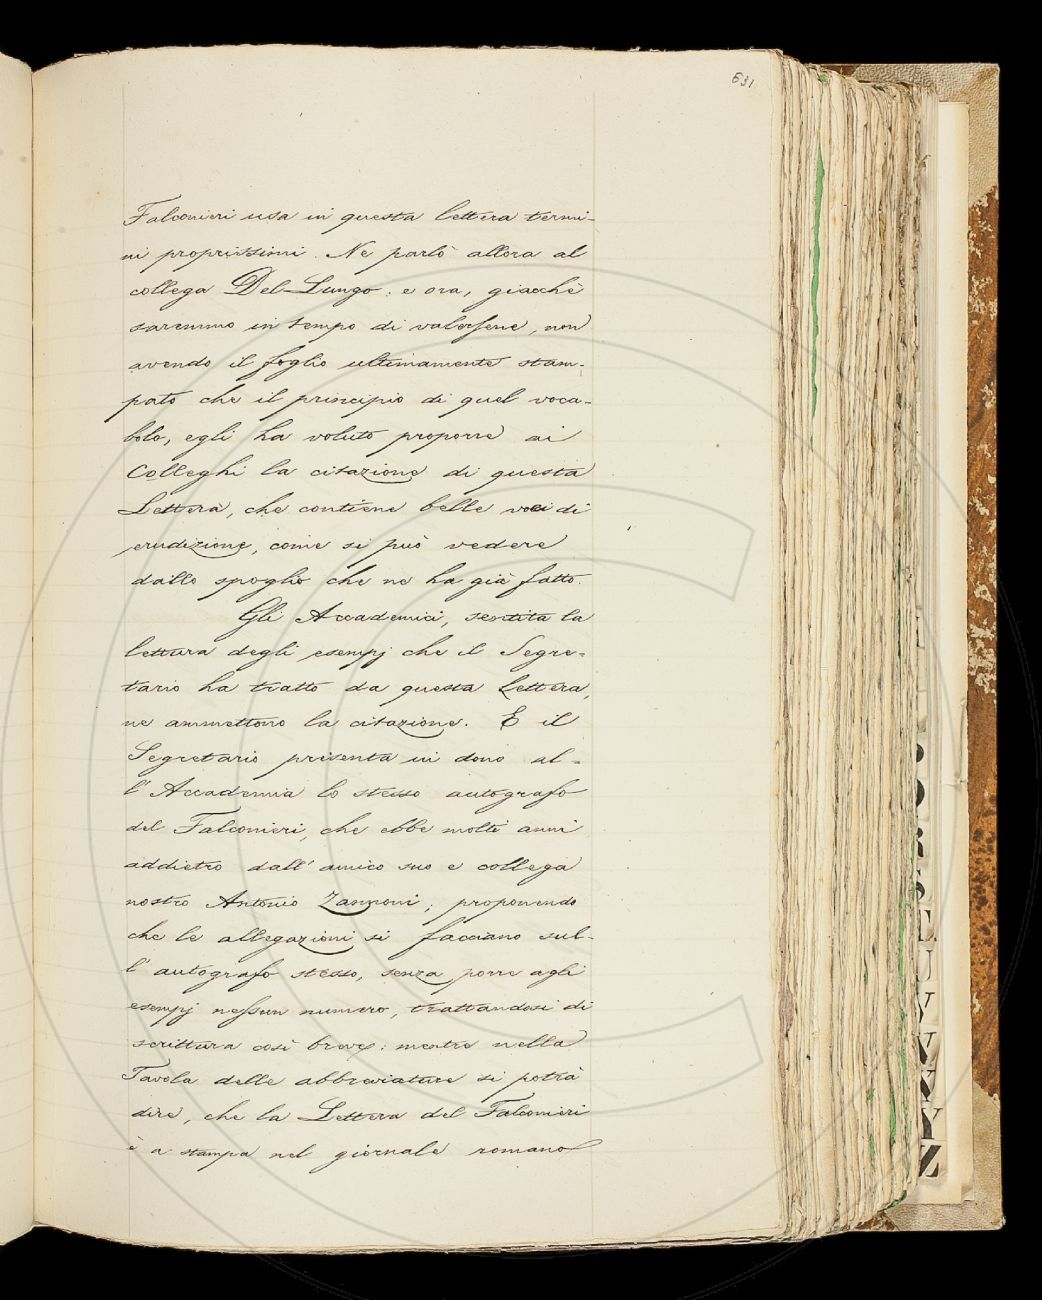 631
Falconieri usa in questa lettera termi-
ni proprissimi. Ne parlò allora al
collega Del-Lungo: e ora, giacchè
saremmo in tempo di valersene, non
avendo il foglio ultimamente stam-
pato che il principio di quel voca-
bolo, egli ha voluto proporre ai
Colleghi la citazione di questa
Lettera, che contiene belle voci di
erudizione, come si può vedere
dallo spoglio che ne ha già fatto.
Gli Accademici, sentita la
lettura degli esempj che il Segre-
tario ha tratto da questa Lettera,
ne ammettono la citazione. E il
Segretario presenta in dono al-
l'Accademia lo stesso autografo
del Falconieri, che ebbe molti anni
addietro dall'amico suo e collega
nostro Antonio Zannoni; proponendo
che le allegazioni si facciano sul-
l'autografo stesso, senza porre agli
esempj nessun numero, trattandosi di
scrittura così breve: mentre nella
Tavola delle abbreviature si potrà
dire, che la Lettera del Falconieri
è a stampa nel giornale romano
O
R
S
T
U
V
W
X
Y
Z